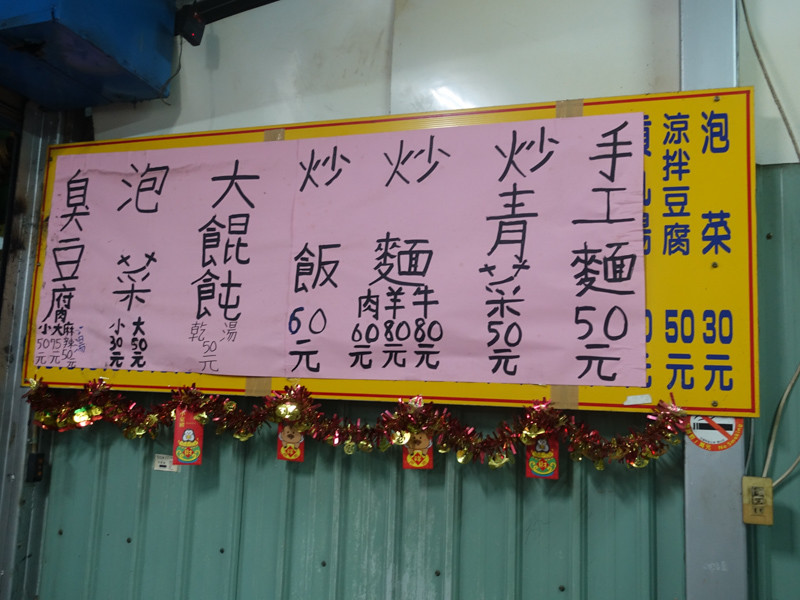 泡菜 30元
涼拌豆腐 50元
手工麵 50元
炒青菜 50元
炒麵
牛 80元
羊 80元
肉 60元
炒飯 60元
大餛飩
湯 乾 50元
泡菜
大 50元
小 30元
臭豆腐
麻辣 50元
大 75元
小 50元